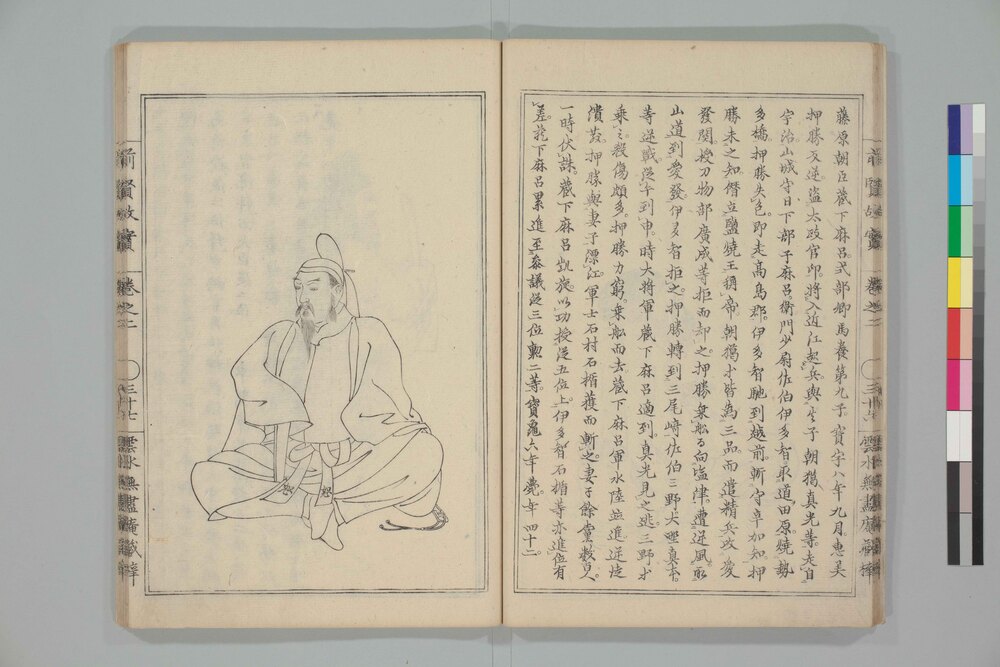 藤原朝臣藏下麻呂式部卿馬養第九子寶字八年九月惠美
押勝反逆盜太政官印將入近江起兵與其子朝獦真光等走自
宇治山城守日下部子麻呂衛門少尉佐伯伊多智取道田原燒勢
多橋押勝失色即走高島郡伊多智馳到越前斬守辛加知押
勝未之知僭立鹽燒王稱帝朝獦等皆為三品而遣精兵攻愛
發關授刀物部廣成等拒而却之押勝乘船向塩津遭逆風取
山道到愛發伊多智拒之押勝轉到三尾崎佐伯三野大野真本
等逆戰從午到申時大將軍藏下麻呂適到真光見之逃三野等
乘之殺傷頗多押勝力窮乘船而去藏下麻呂軍水陸並進逆徒
潰散押勝與妻子漂江軍士石村石楯獲而斬之妻子餘黨數百人
一時伏誅藏下麻呂凱旋以功授從五位上伊多智石楯等亦進位有
差藏下麻呂累進至參議從三位勳二等寶龜六年薨年四十二
前賢故實
卷之二
三十七
雲水無盡庵藏梓
前賢故實
卷之二
三十七
雲水無盡庵藏梓